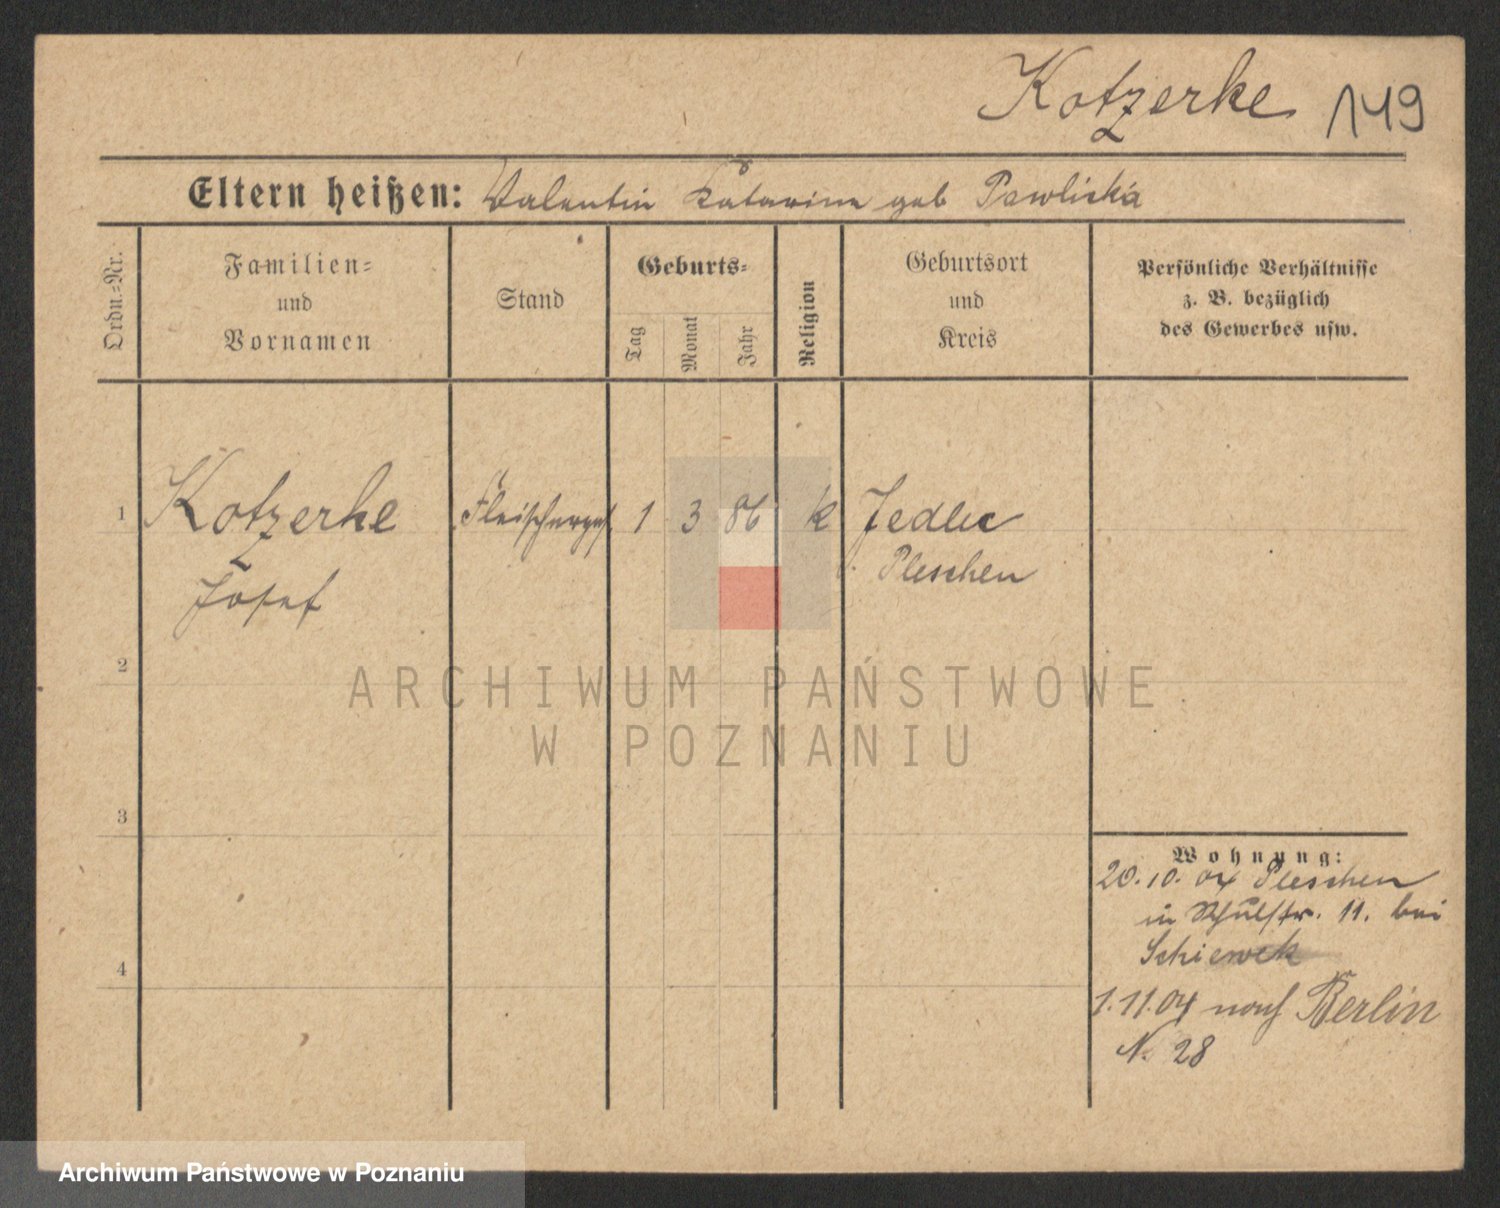 Kotzerke 149
Eltern heißen: Valentin Katarina geb Pawlicka
Ordn.-Nr.
Familien-
und
Vornamen
Stand
Geburts-
Tag
Monat
Jahr
Religion
Geburtsort
und
Kreis
Persönliche Verhältnisse
z. B. bezüglich
des Gewerbes usw.
1 Kotzerke Fleischerges 1 3 86 k Jedlec
Josef Pleschen
2
ARCHIWUM PAŃSTWOWE
W POZNANIU
3
Wohnung:
20.10.04 Pleschen
in Schulstr. 11. bei
Schiewek
4
1.11.04 nach Berlin
N. 28
Archiwum Państwowe w Poznaniu